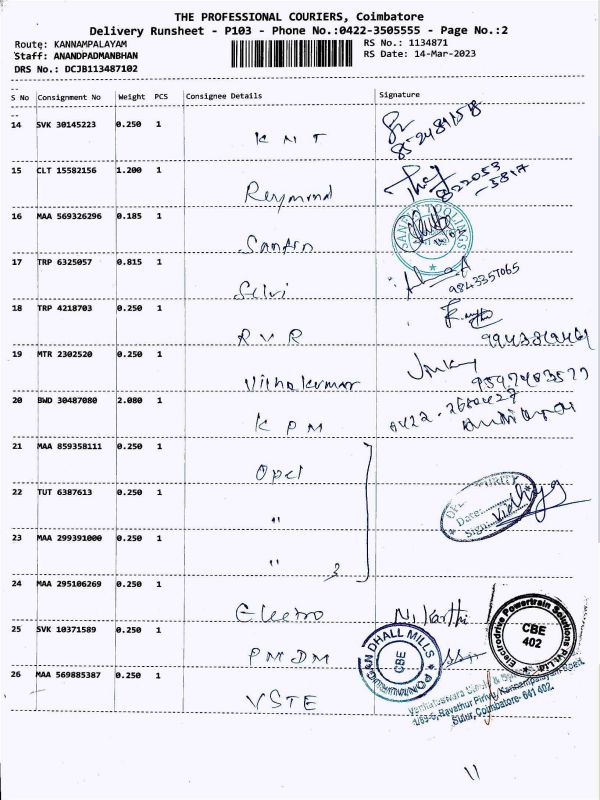 THE PROFESSIONAL COURIERS, Coimbatore
Delivery Runsheet - P103 - Phone No.:0422-3505555 - Page No.:2
Route: KANNAMPALAYAM
RS No.: 1134871
Staff: ANANDPADMANBHAN
RS Date: 14-Mar-2023
DRS No.: DCJB113487102
S No Consignment No Weight PCS Consignee Details Signature
14 SVK 30145223 0.250 1
K M T
15 CLT 15582156 1.200 1
Raymond
16 MAA 569326296 0.185 1
17 TRP 6325057 0.815 1
Selvi
9843357065
18 TRP 4218703 0.250 1
R V R
19 MTR 2302520 0.250 1
20 BWD 30487080 2.080 1
0422-2680427
K P M
21 MAA 859358111 0.250 1
Opel
22 TUT 6387613 0.250 1
"
SECURITY
Date:
Sign: Vidhya
23 MAA 299391000 0.250 1
" 3
24 MAA 295106269 0.250 1
Electro N. Karthi
Electrodrive Powertrain Solutions Pvt.Ltd.
CBE
402
25 SVK 10371589 0.250 1
PMDM
DHALL MILLS
CBE
26 MAA 569885387 0.250 1
VSTE
Kannampalayam Road,
Sulur, Coimbatore- 641 402.
11